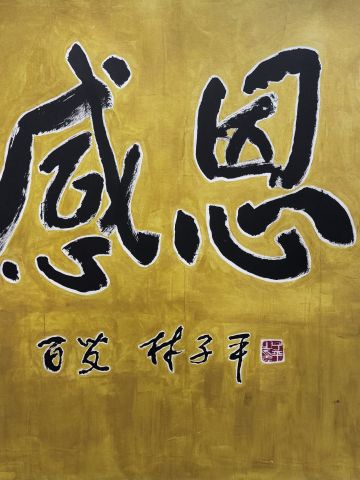 感恩
百岁 林子平